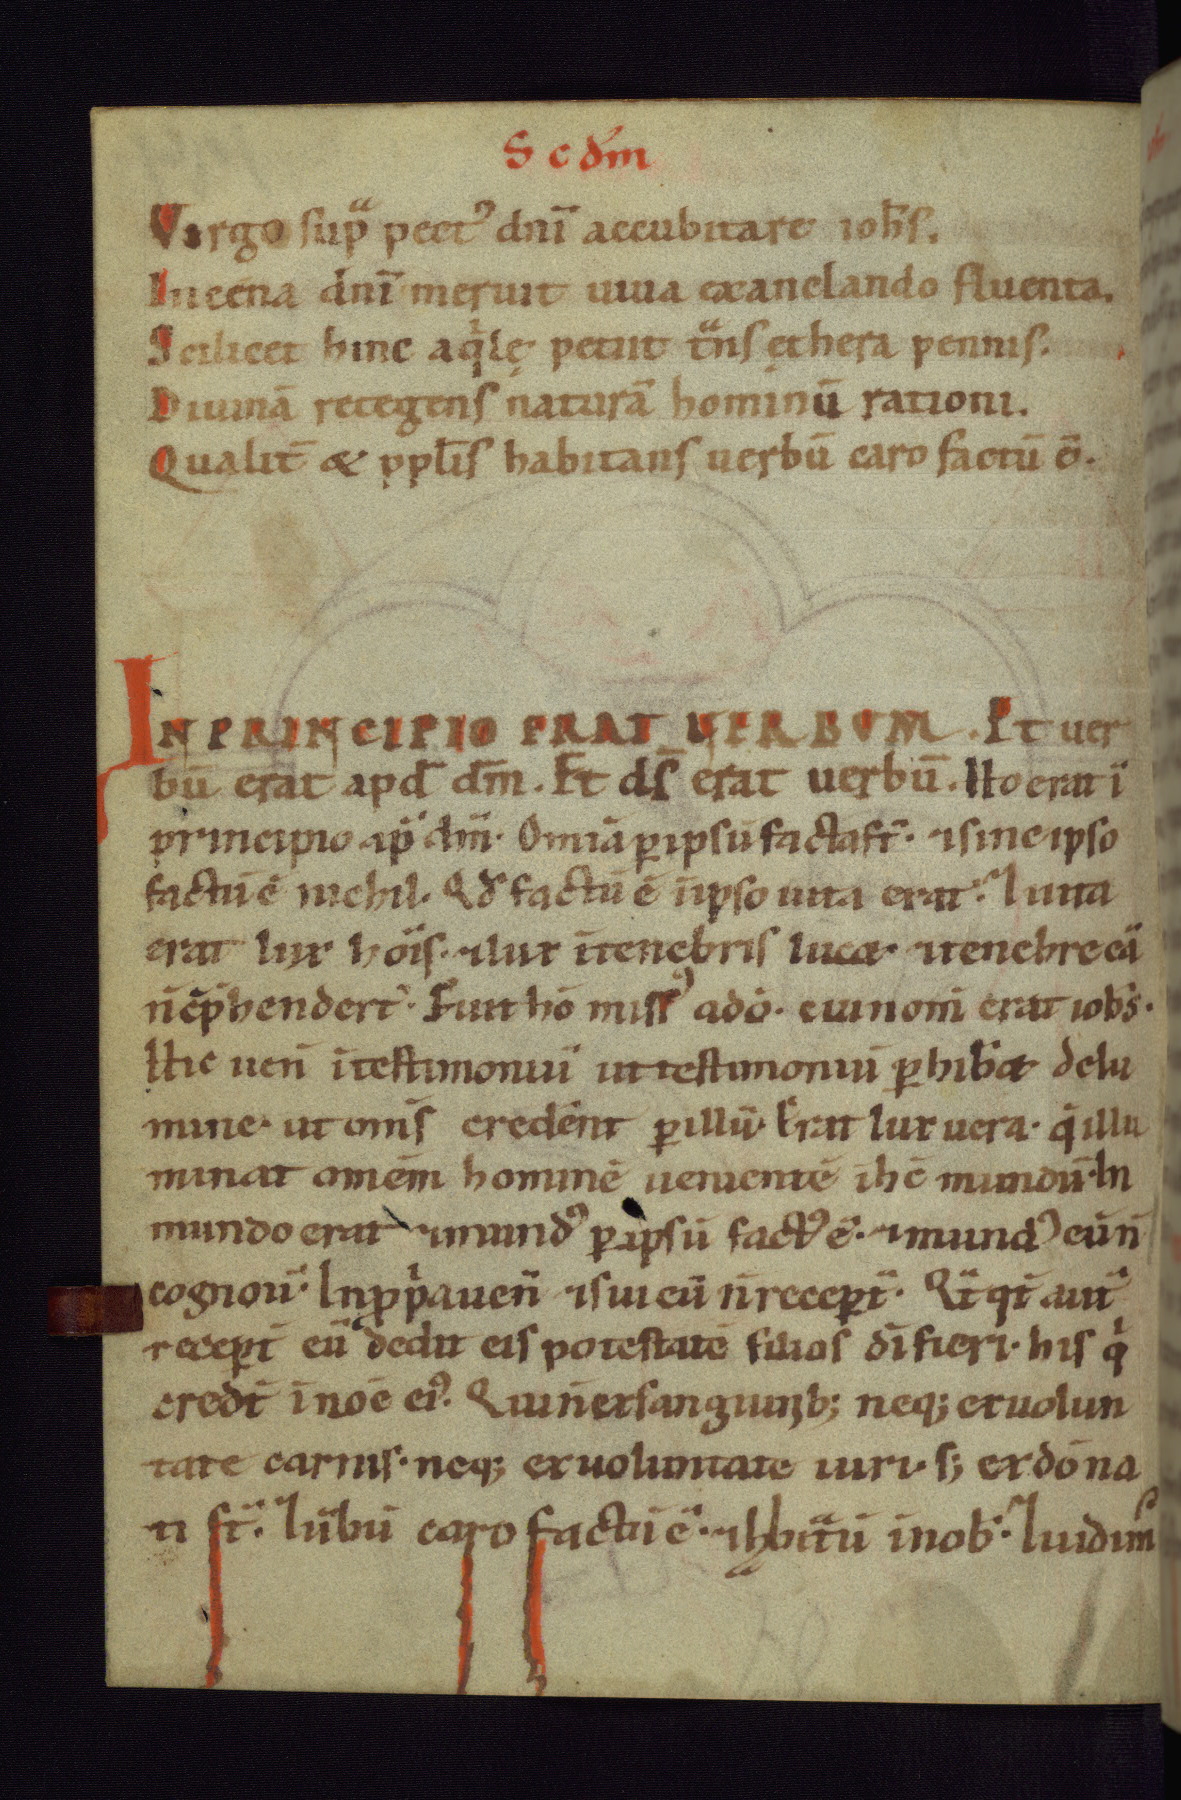 Scdm̄
Virgo sup̄ pect᾿ dnī accubitare ioh̄s.
In cena dnī meruit uiua exanelando fluenta.
Scilicet hinc aqͥlę petiit tᷓns ęthera pennis.
Diuinā retegens naturā hominū rationi.
Qualit̄ & ppl̄is habitans uerbū caro factū ē.
IN PRINCIPIO ERAT VERBUM. Et uer
bū erat apd̄ dm̄. Et ds̄ erat uerbū. Hoc erat ī
principio ap̄ dm̄. Om̄ia ꝑ ipsū facta st̄. ⁊ sine ipso
factū ē nichil. Qd̄ factū ē īipso uita erat. ⁊ uita
erat lux hoīs. ⁊ lux ītenebris lucet. ⁊ tenebre eā
n̄ c̄p̄hendert̄. Fuit hō miss᾿ adō. cui nom̄ erat ioh̄s.
Hic uen̄ ītestimoniū ut testimoniū ꝑhib̄et de lu
mine. ut om̄s credēnt ꝑ illū. Erat lux uera. q̄ illu
minat om̄em hominē uenientē īhc̄ mundū. In
mundo erat ⁊ mund᾿ ꝑ ipsū fact᾿ ē. ⁊ mund᾿ eū n̄
cognou̅. In ppͥa uen̄ ⁊ sui eū n̄ receꝑt̄. Qt̄qt̄ aut̄
receꝑt̄ eū dedit eis potestatē filios dī fieri. his qͥ
credt̄ ī noē ei᾿. Qui n̄ ex sanguinib; neq; ex uolun
tate carnis. neq; ex uoluntate uiri. s; ex dō na
ti st̄. ⁊ u̅bū caro factū ē. ⁊ hbitᷓū inob̄. ⁊ uidim᾿